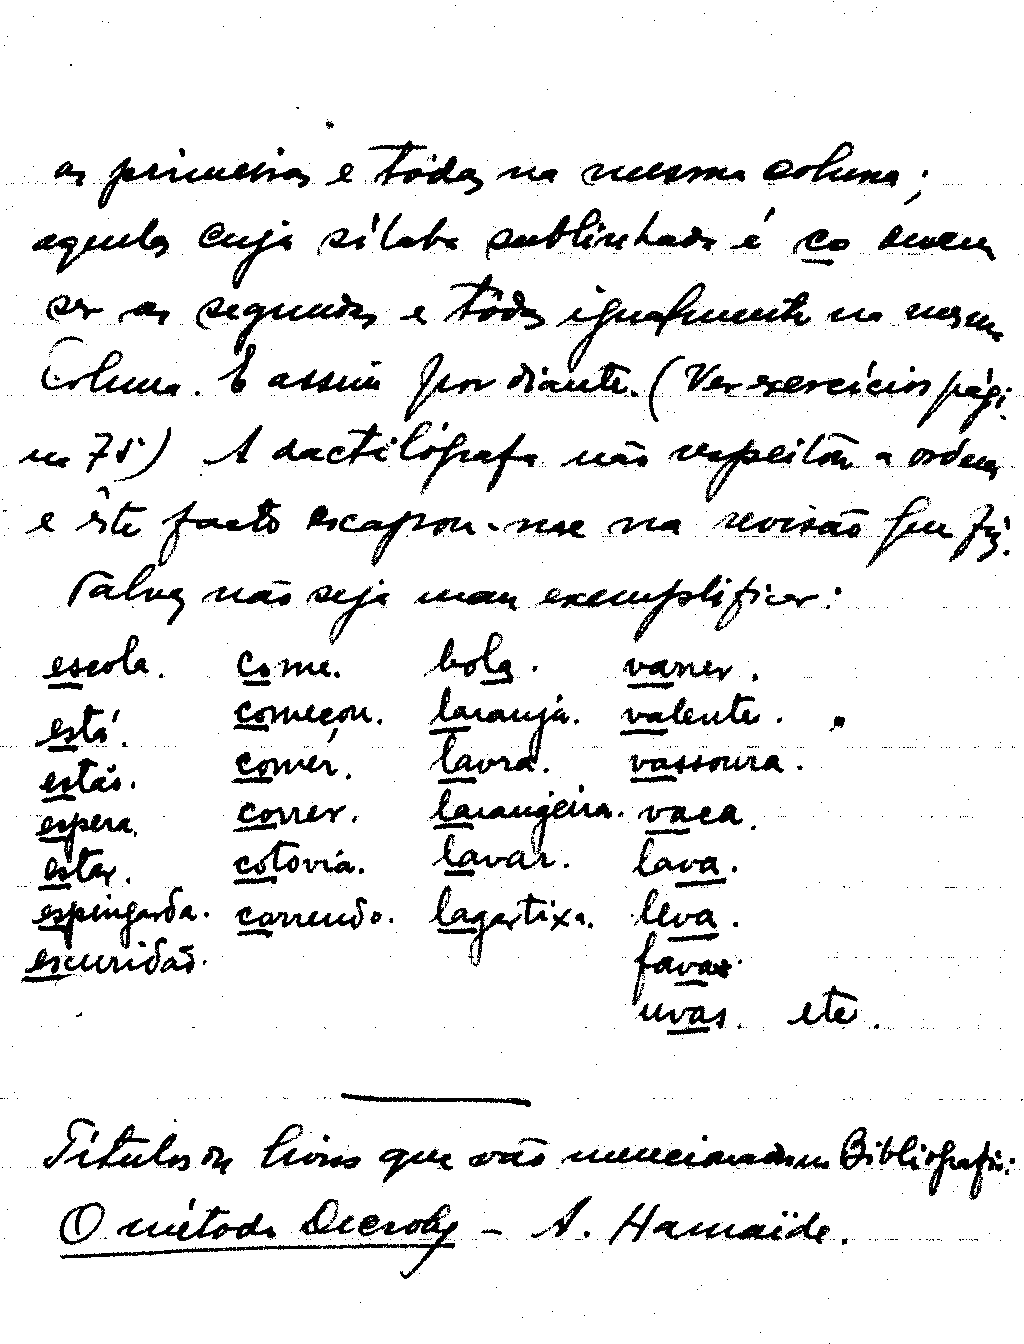 as primeiras e tôdas na mesma coluna;
aquelas cuja sílaba sublinhada é co devem
ser as segundas e tôdas igualmente na mesma
coluna. E assim por diante. (Ver exercícios pági-
na 75) A dactilógrafa não respeitou a ordem
e êste facto escapou-me na revisão que fiz.
Talvez não seja mau exemplificar:
escola. come. bola. varrer.
está. começou. laranja. valente.
estás. comer. lavra. vassoura.
espera. correr. laranjeira. vaca.
estar. cotovia. lavar. lava.
espingarda. correndo. lagartixa. leva.
escuridão. favas.
uvas. etc.
Títulos de livros que vão mencionados na Bibliografia:
O método Decroly – A. Hamaïde.